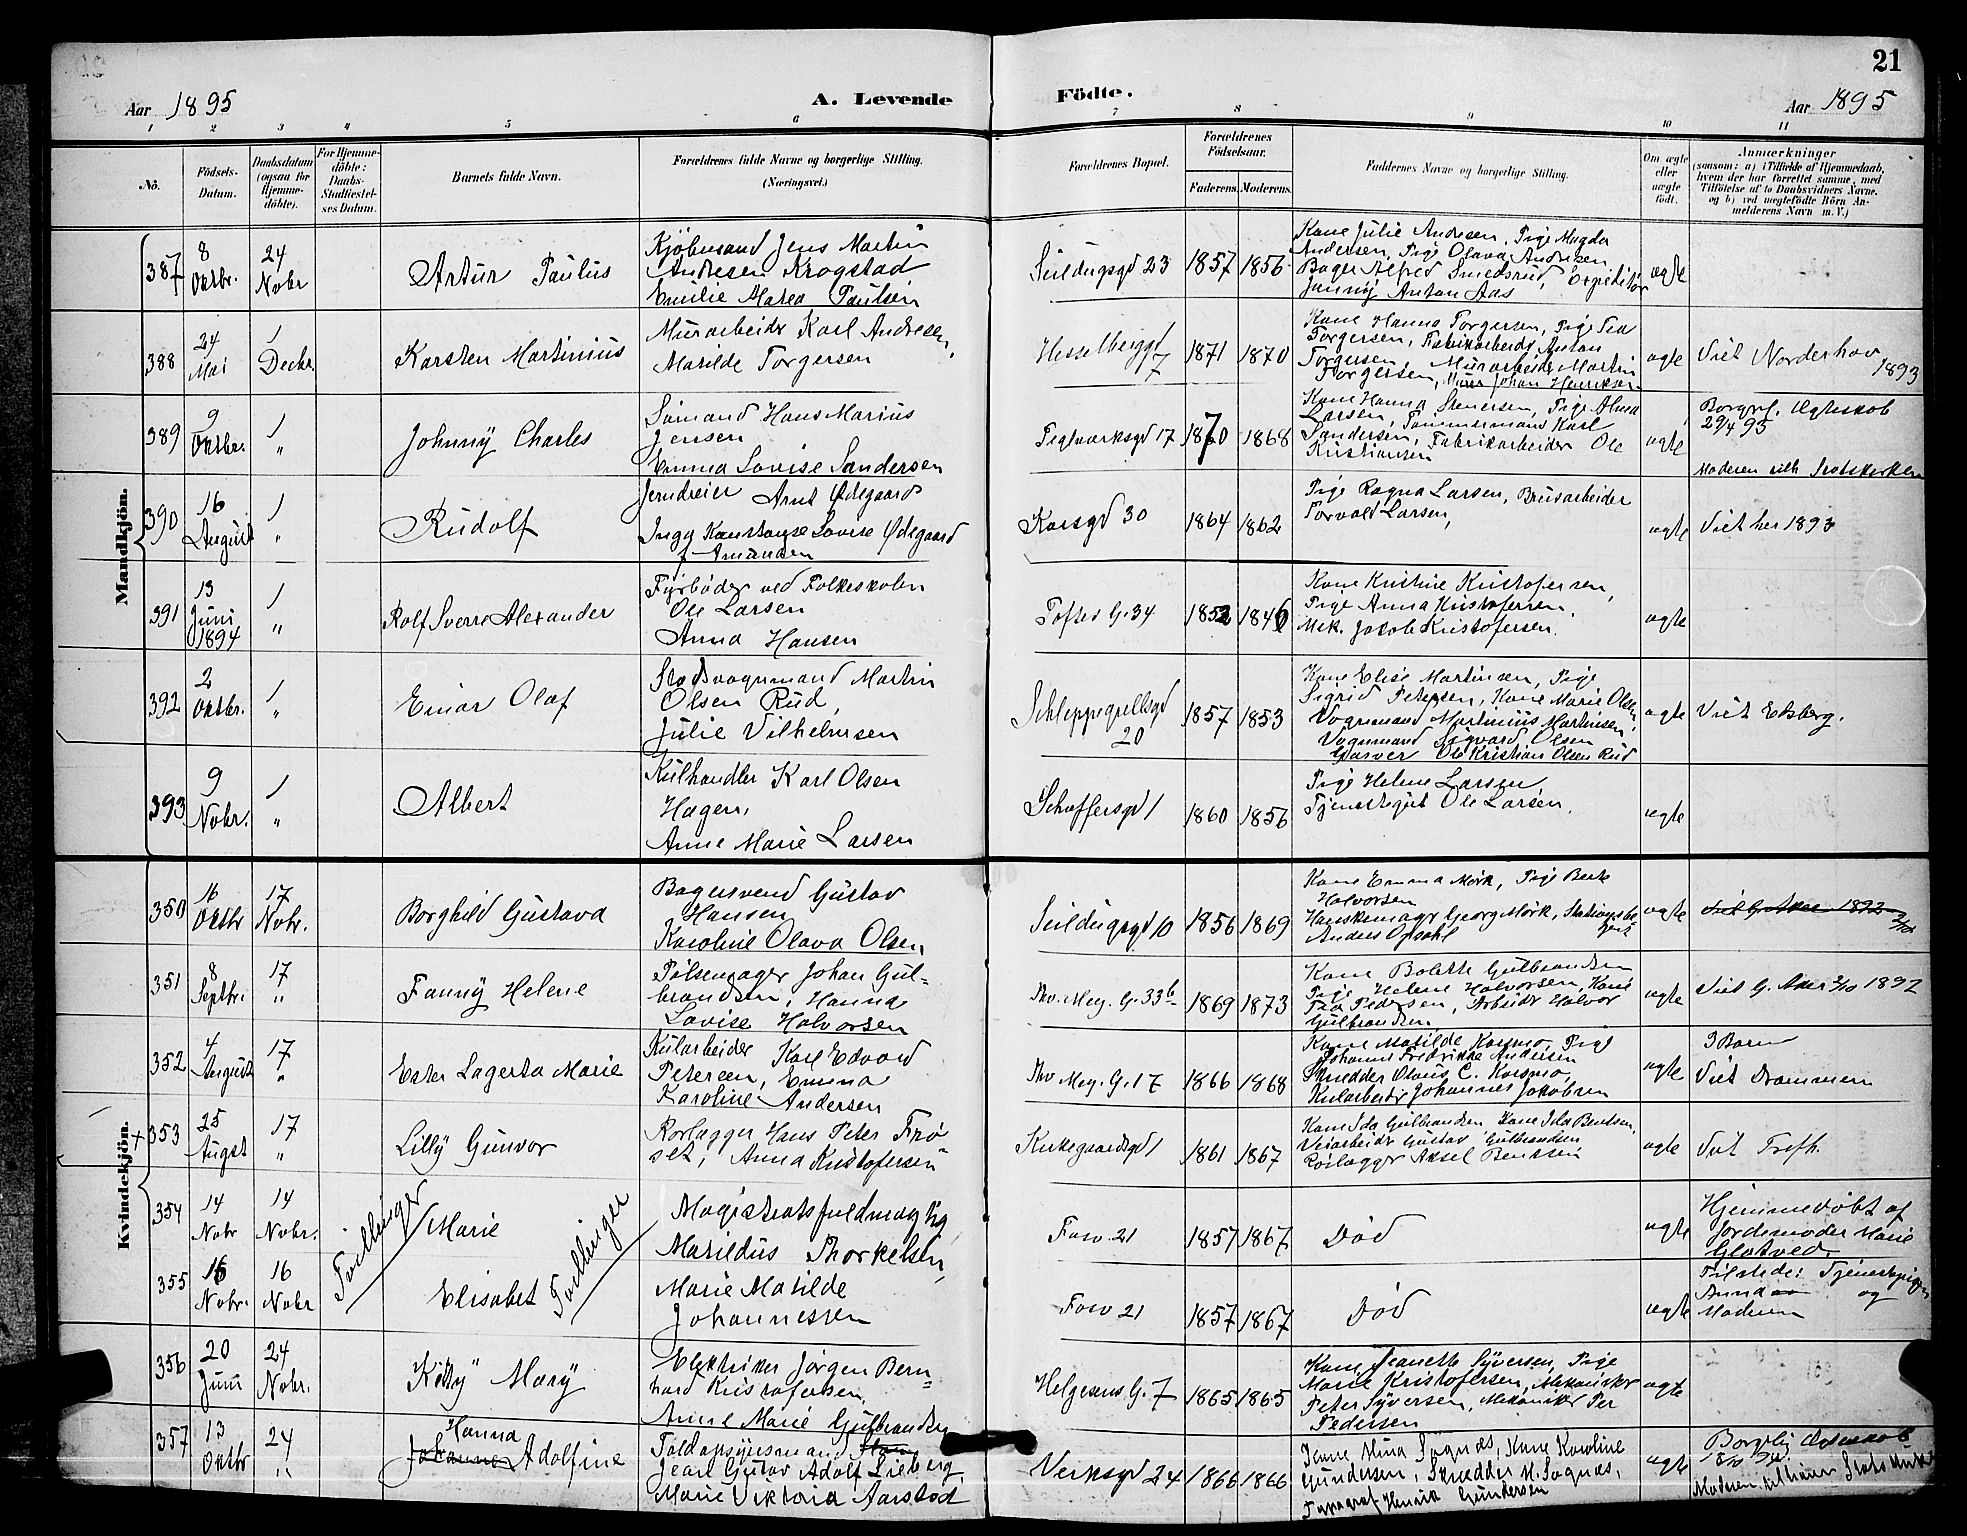 21
Aar 1895
A. Levende Födte.
Aar 1895
1 2 3 4 5 6 7 8 9 10 11
No.
Födsels-Datum.
Daabsdatum (ogsaa for Hjemme-döbte).
For Hjemme-döbte: Daabs-Stadfæstel-ses Datum.
Barnets fulde Navn.
Forældrenes fulde Navne og borgerlige Stilling.
(Næringsvei.)
Forældrenes Bopæl.
Forældrenes Födselsaar.
Faderens. Moderens.
Faddernes Navne og borgerlige Stilling.
Om ægte eller uægte födt.
Anmærkninger
(saasom: a) i Tilfælde af Hjemmedaab,
hvem der har forrettet samme, med
Tilföielse af to Daabsvidners Navne.
og b) ved uægtefödte Börn An-
melderens Navn m. V.)
Mandkjön.
387
8 Oktbr.
24 Nobr
Artur Paulus
Kjöbmand Jens Martin
Andresen Krogstad
Emilie Marea Paulsen
Seildugsgd 23
1857 1856
Kone Julie Andresen, Pige Magda
Andersen, Pige Olava Andresen
Bager Alfred Smedsrud, Expeditör
Anton Aas
ægte
388
24 Mai
1 Decbr.
Karsten Martinius
Murarbeider Karl Andresen,
Matilde Torgersen
Hesselberggd 7
1871 1870
Kone Hanna Torgersen, Pige Tea
Torgersen, Fabrikarbeidr Anton
Torgersen, Murarbeidr Martin
Torgersen, Murer Johan Henriksen
ægte
Viet Norderhov 1893
389
9 Oktbr.
1 "
Johnny Charles
Sömand Hans Marius
Jensen
Emma Lovise Sandersen
Teglværksgd 17
1870 1868
Kone Hanna Stenersen, Pige Alma
Larsen, Tömmermand Karl
Sandersen, Fabrikarbeider Ole
Kristiansen
ægte
Borgerl. Ægteskab
29/4 95
Moderen tilh Statskirken
390
16 August
1 "
Rudolf
Jerndreier Arnt Ødegaard
Inga Konstanse Lovise Ødegaard
f. Amundsen
Korsgd 30
1864 1862
Pige Ragna Larsen, Brusarbeider
Torvald Larsen,
ægte
Viet her 1893
391
13 Juni 1894
1 "
Rolf Sverre Alexander
Fyrböder ved Folkeskolen
Ole Larsen
Anna Hansen
Toftes G. 34
1852 1846
Kone Kristine Kristofersen,
Pige Anna Kristofersen,
Mek. Jacob Kristofersen.
ægte
392
2 Oktbr.
1 "
Einar Olaf
Stadsvognmand Martin
Olsen Rud,
Julie Vilhelmsen
Schleppegrellsgd 20
1857 1853
Kone Elise Martinsen, Pige
Sigrid Petersen, Kone Marie Olsen,
Vognmand Martinius Martinsen,
Vognmand Sigvard Olsen
Garver Ole Kristian Olsen Rud
ægte
Viet Edsberg.
393
9 Nobr.
1 "
Albert
Kulhandler Karl Olsen
Hagen,
Anne Marie Larsen
Schaffersgd 1
1860 1856
Pige Helene Larsen
Tjenestegut Ole Larsen.
ægte
Kvindekjön.
350
16 Oktbr
17 Nobr.
Borghild Gustava
Bagersvend Gustav
Hansen
Karoline Olava Olsen,
Seildugsgd 10
1856 1869
Kone Emma Mørk, Pige Berte
Halvorsen
Hanskemagr Georg Mørk, Stationsbe
tjent Anders Opsahl
ægte
Viet G. Aker 1892 2/10
351
8 Septbr.
17 "
Fanny Helene
Pölsemager Johan Gul-
brandsen, Hanna
Lovise Halvorsen
Thv. Mey. G. 33b
1869 1873
Kone Bolette Gulbrandsen
Pige Helene Halvorsen, Kone
Tea Pedersen, Arbeidr Halvor
Gulbrandsen,
ægte
Viet G. Aker 2/10 1892
352
4 August
17 "
Ester Lagerta Marie
Kularbeider Karl Edvard
Petersen, Emma
Karoline Andersen
Thv Mey. G. 17
1866 1868
Kone Matilde Korsmo, Pige
Johanne Fredrikke Andersen
Skredder Olaus C. Korsmo,
Kularbeidr Johannes Jakobsen
ægte
3 Barn
Viet Drammen
+ 353
25 Augst
17 "
Lilly Gunvor
Rörlægger Hans Peter Frø
set, Anna Kristofersen
Kirkegaardsgd 1
1861 1867
Kone Ida Gulbrandsen Kone Ida Bentsen,
Veiarbeidr Gustav Gulbrandsen
Rörlægger Aksel Bentsen
ægte
Viet Trefh.
354
14 Nobr
14 Nobr.
Tvillinger
Marie
Tvillinger
Magistratsfuldmægtig
Matildus Thorkelsen,
Fosv. 21
1857 1867
Död
ægte
Hjemmedöbt af
Jordemoder Marie
Glotved.
355
16 Nobr.
16 Nobr
Elisabet
Marie Matilde
Johannessen
Fosv 21
1857 1867
Död
ægte
Tilstede: Tjenestepigen
Anna og
Moderen
356
20 Juni
24 Nobr.
Kitty Mary
Elektriker Jörgen Bern-
hard Kristofersen,
Anne Marie Gulbrandsen
Helgesens G. 7
1865 1865
Kone Jeanette Syversen, Pige
Marie Kristofersen, Mekaniker
Peter Syversen, Mekaniker Per
Pedersen
ægte
357
13 Oktbr
24 "
Hanna
Johanne Adolfine
Toldopsynsmand
Jearl Gustav Adolf Lieberg
Marie Viktoria Aarstad
Verksgd 24
1866 1866
Kone Mina Sognæs, Kone Karoline
Gundersen, Skrædder M. Sognæs,
Typograf Henrik Gundersen
ægte
Borgerlig Ægteskab
Moderen tilhörer Statskirken